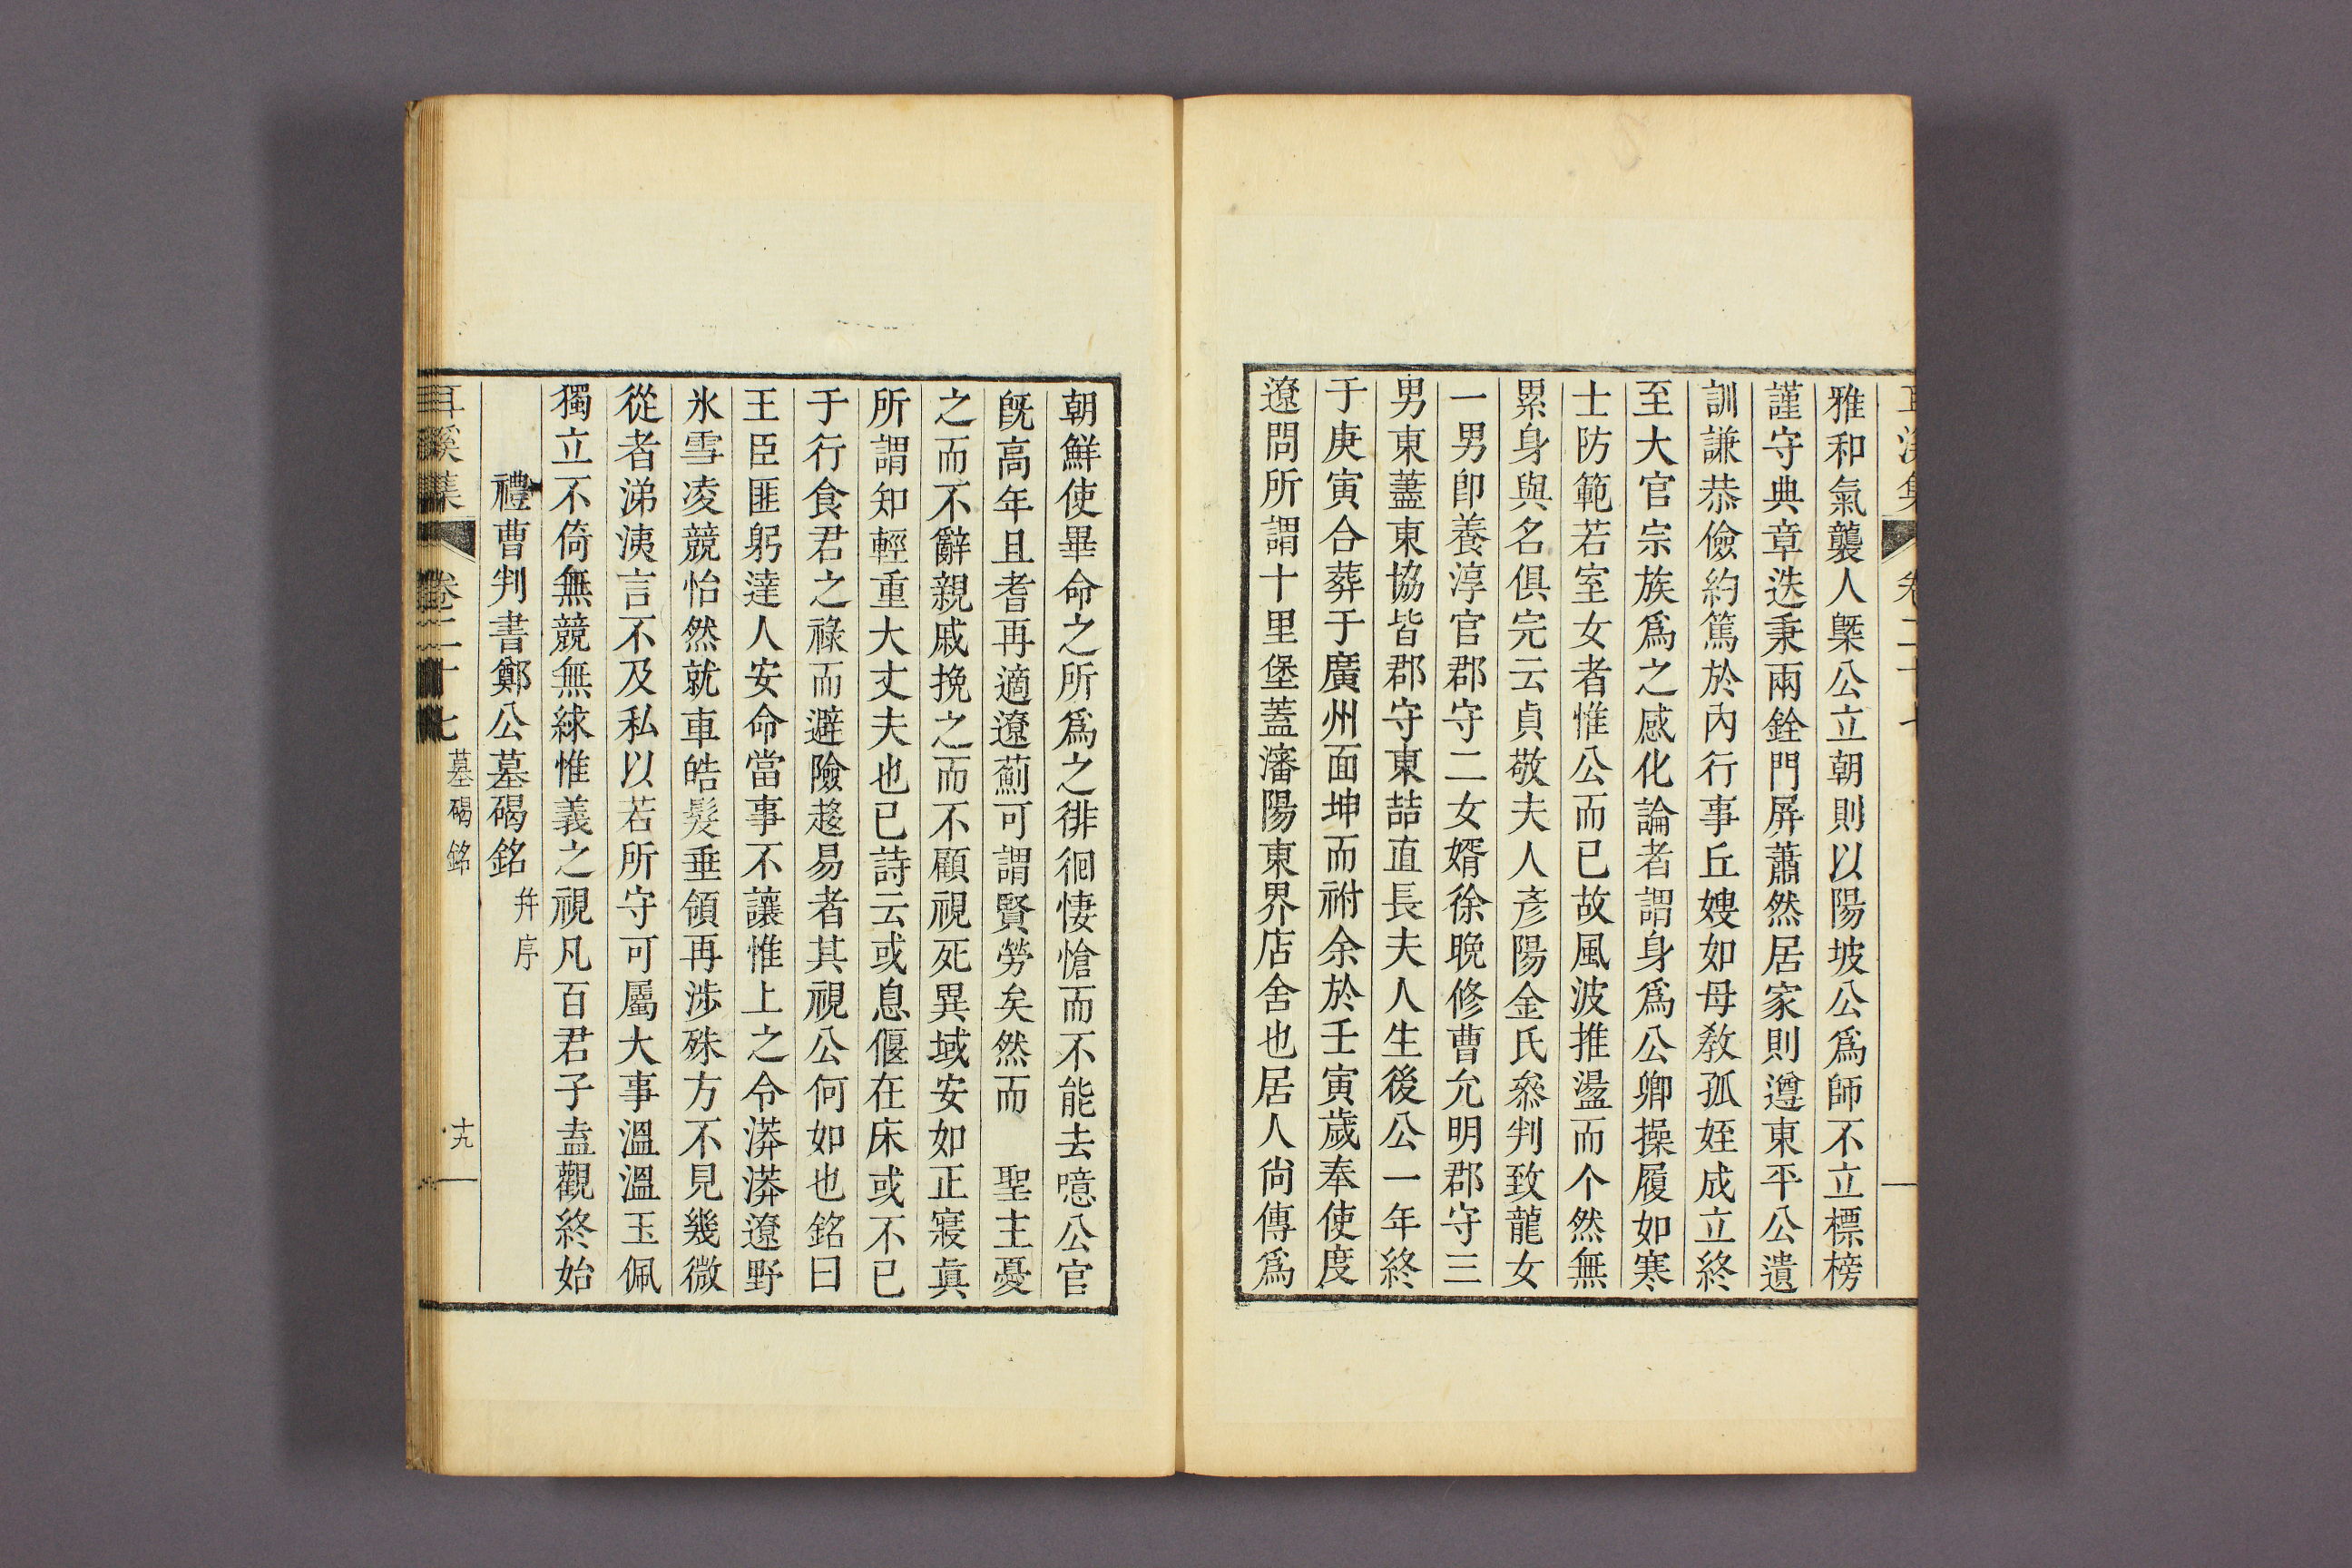 雅和氣襲人槩公立朝則以陽坡公爲師不立標榜
謹守典章迭秉兩銓門屏蕭然居家則遵東平公遺
訓謙恭儉約篤於內行事丘嫂如母敎孤姪成立終
至大官宗族爲之感化論者謂身爲公卿操履如寒
士防範若室女者惟公而已故風波推盪而个然無
累身與名俱完云貞敬夫人彥陽金氏叅判致龍女
一男卽養淳官郡守二女婿徐晩修曹允明郡守三
男東藎東協皆郡守東喆直長夫人生後公一年終
于庚寅合葬于廣州面坤而祔余於壬寅歲奉使度
遼問所謂十里堡蓋瀋陽東界店舍也居人尙傳爲
朝鮮使畢命之所爲之徘徊悽愴而不能去噫公官
旣高年且耆再適遼薊可謂賢勞矣然而 聖主憂
之而不辭親戚挽之而不顧視死異域安如正寢眞
所謂知輕重大丈夫也已詩云或息偃在床或不已
于行食君之祿而避險趍易者其視公何如也銘曰
王臣匪躬達人安命當事不讓惟上之令漭漭遼野
氷雪凌競怡然就車皓髮垂領再涉殊方不見幾微
從者涕洟言不及私以若所守可屬大事溫溫玉佩
獨立不倚無競無絿惟義之視凡百君子盍觀終始
禮曹判書鄭公墓碣銘 幷序
耳溪集 卷二十七 墓碣銘 十九